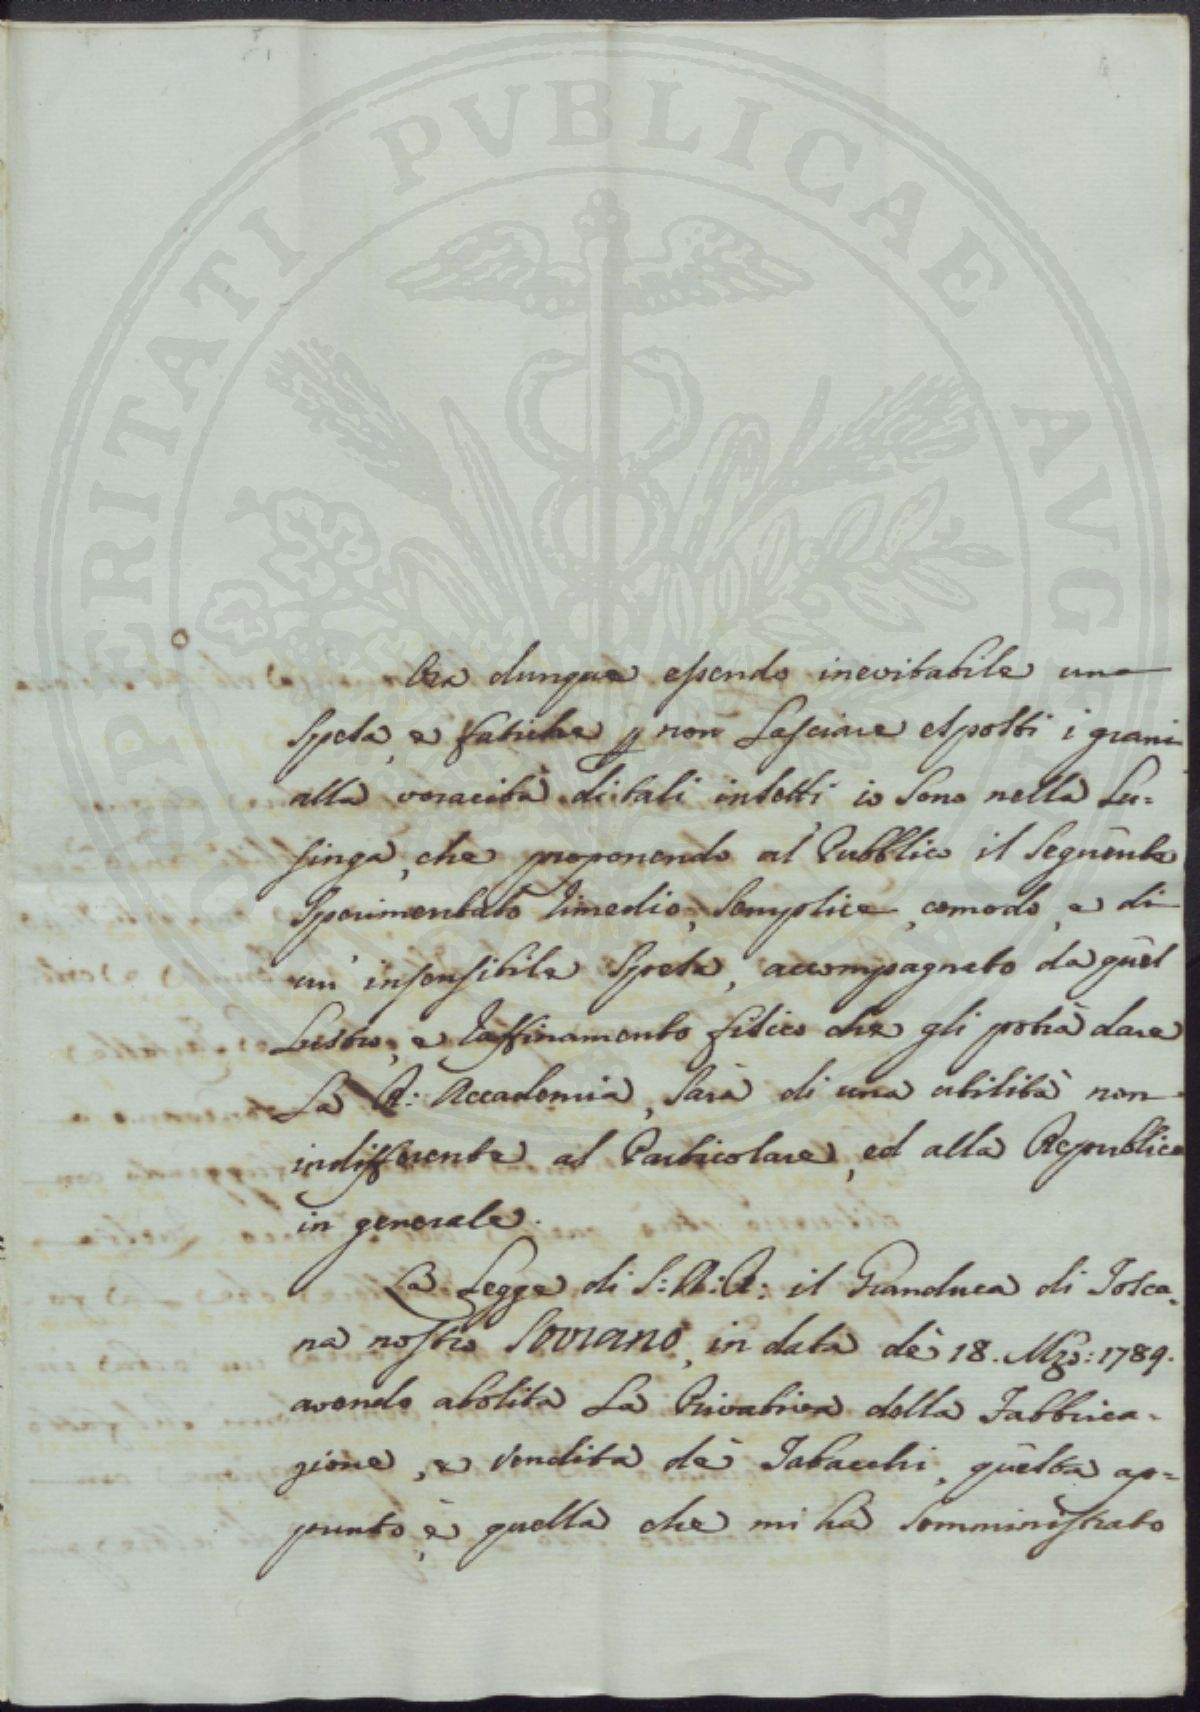 PROSPERITATI PVBLICAE AVG
Ora dunque essendo inevitabile una
Spesa, e fatiche p non Lasciare esposti i grani
alla voracità di tali insetti, io Sono nella Lu=
singa, che proponendo al Pubblico il Seguente
Sperimentato Rimedio, Semplice, comodo, e di
un' insensibile Spesa, accompagnato da quel
Lustro, e Raffinamento fisico che gli potrà dare
La R: Accademia, Sarà di una utilità non
indifferente al Particolare, ed alla Repubblica
in generale.
La Legge di S: A: R: il Granduca di Tosca=
na nostro Sovrano, in data dè 18. Mzo: 1789.
avendo abolita La Privativa della Fabbrica=
zione, e Vendita dè Tabacchi, questa ap=
punto è quella che mi ha Somministrato